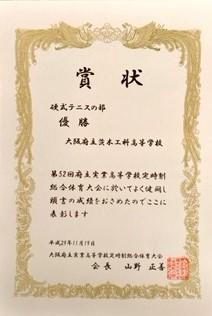 賞状
硬式テニスの部
優勝
大阪府立茨木工科高等学校
第52回府立実業高等学校定時制
総合体育大会に於いてよく健闘し
頭書の成績をおさめたのでここに
表彰します
平成29年11月19日
大阪府立実業高等学校定時制総合体育大会
会長 山野 正善